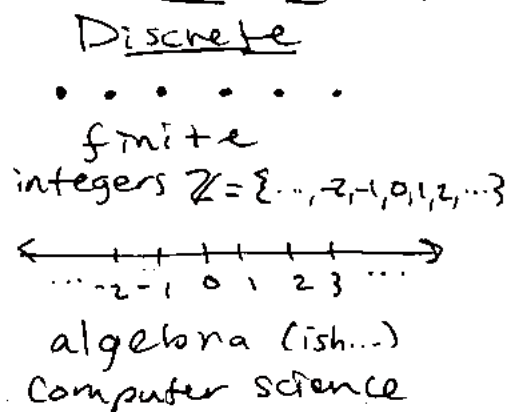 Discrete
finite
integers ℤ = {..., -2, -1, 0, 1, 2, ...}
... -2 -1 0 1 2 3 ...
algebra (ish...)
computer science